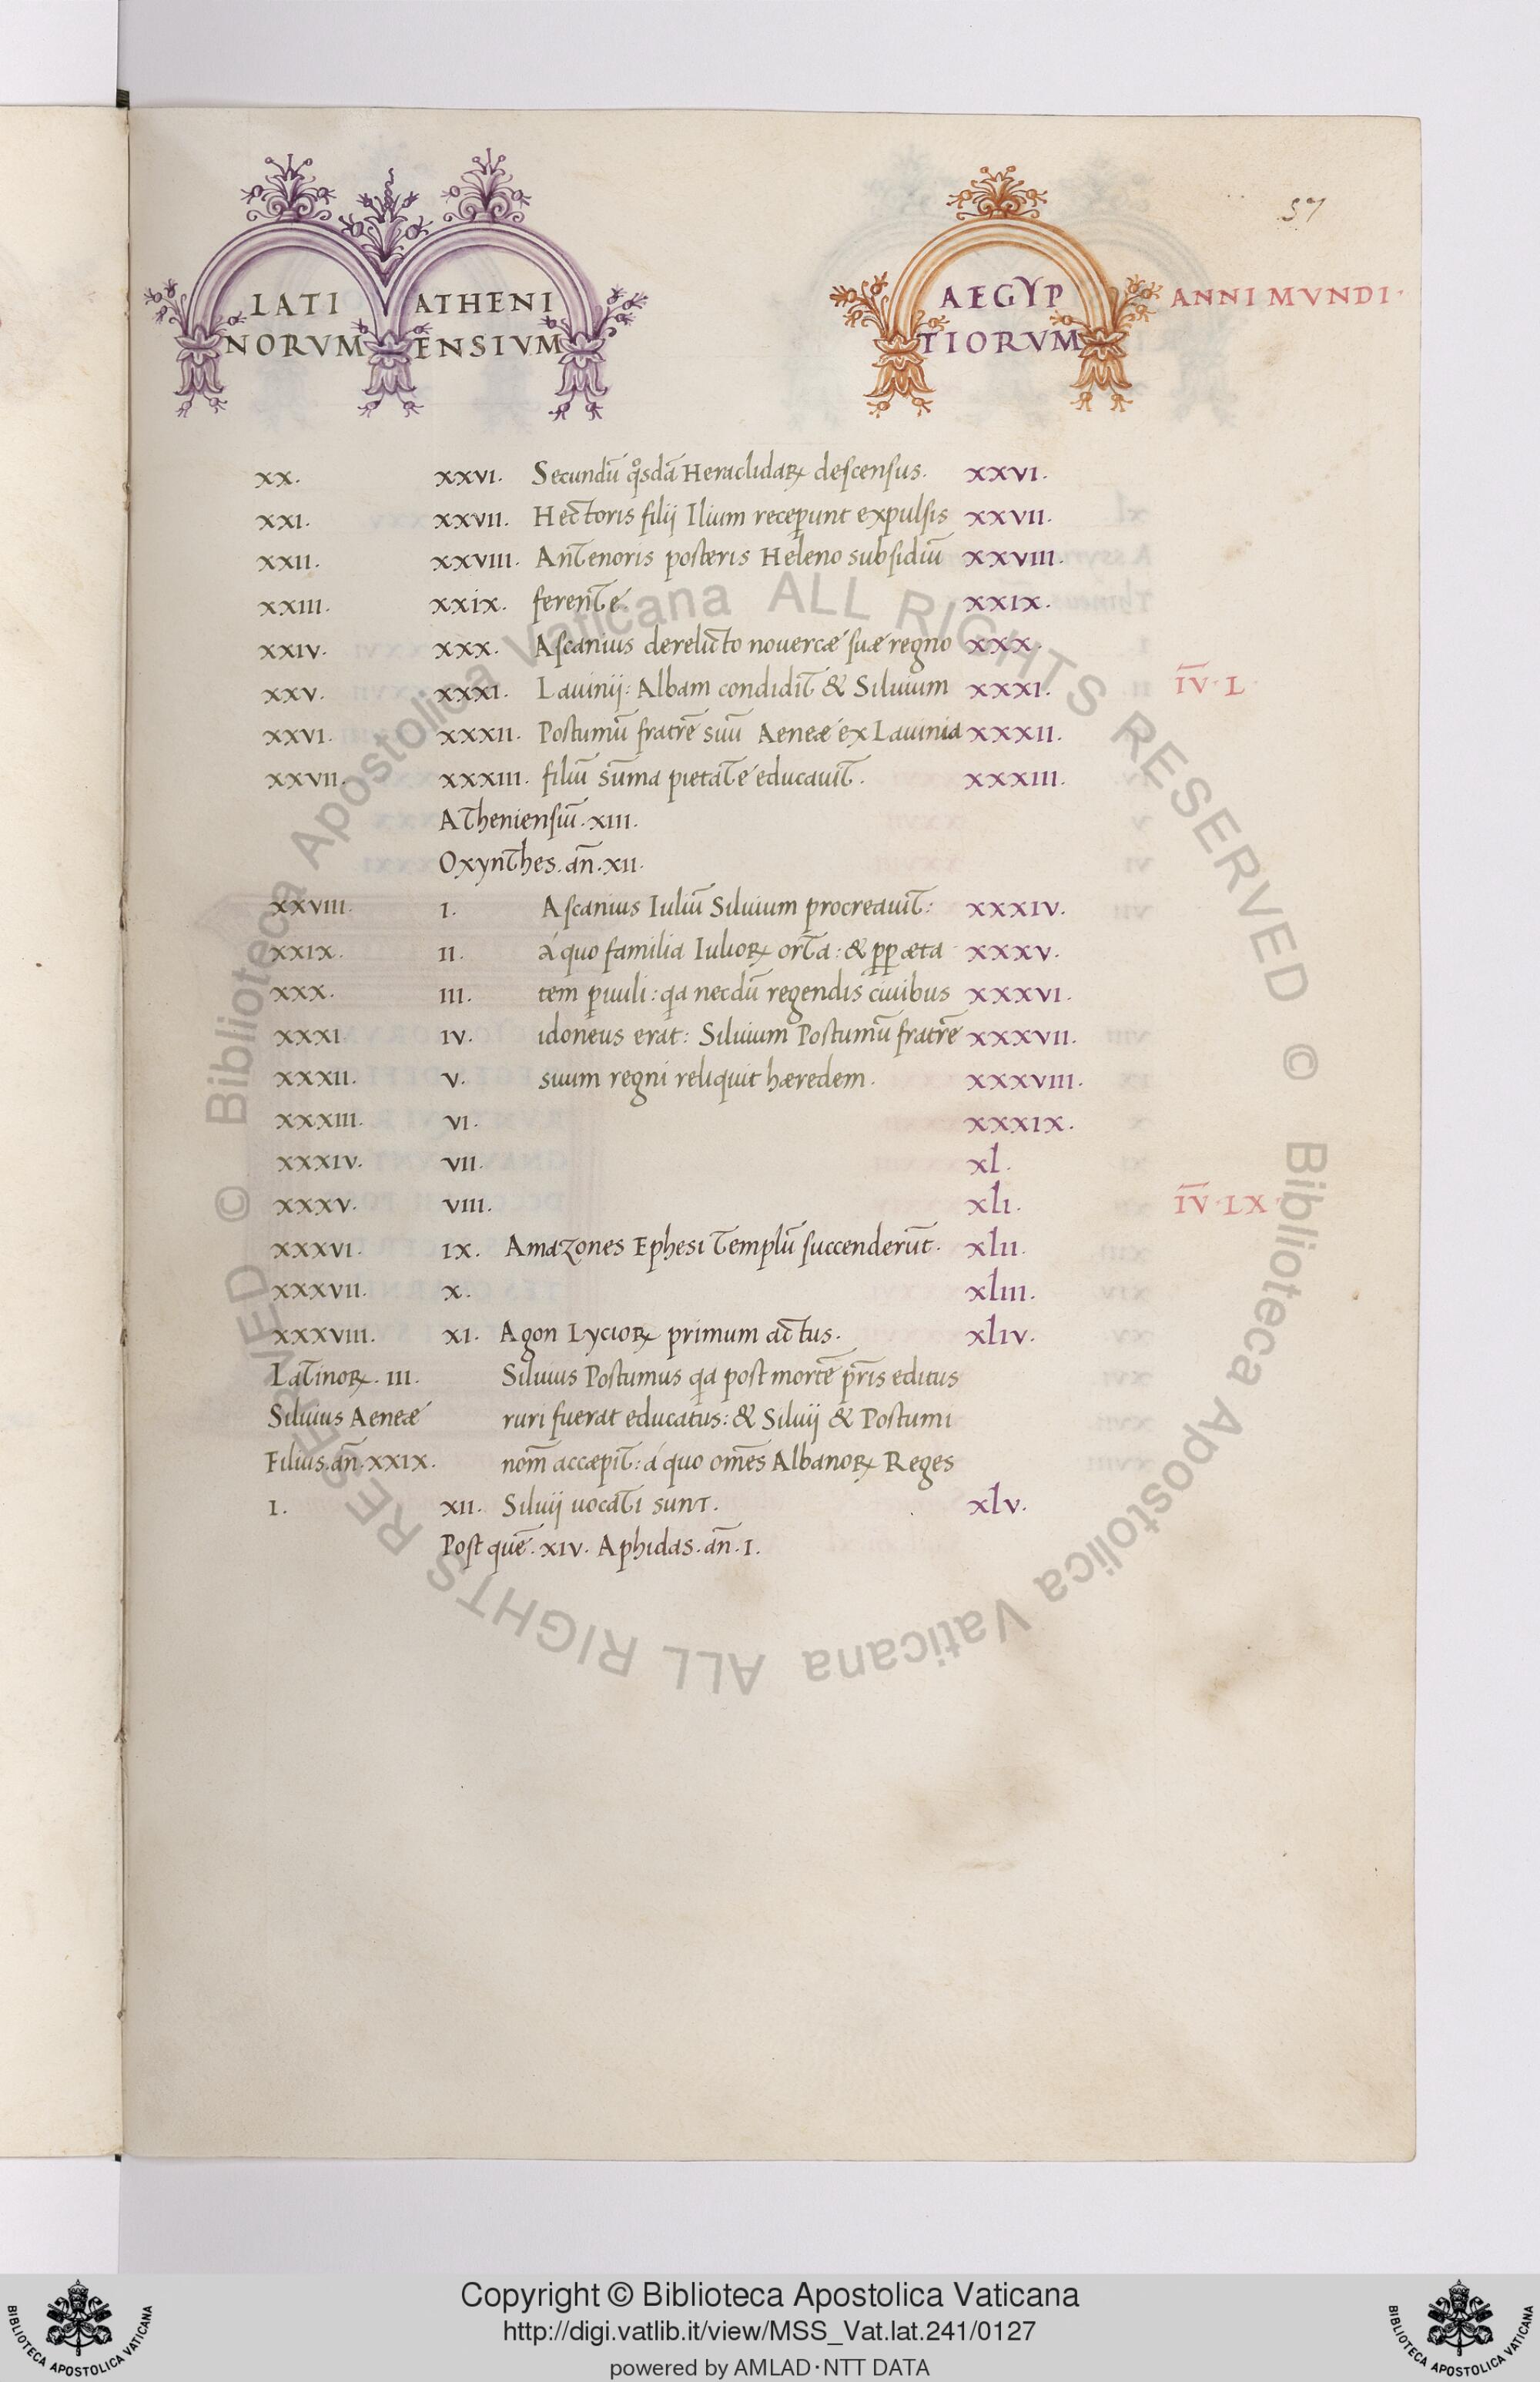 57
LATI ATHENI AEGYP ANNI MVNDI·
NORVM ENSIVM TIORVM
XX. XXVI. Secundū qͦsdā Heraclidaꝝ descensus. XXVI.
XXI. XXVII. Hectoris filij Ilium recep̱unt expulsis XXVII.
XXII. XXVIII. Antenoris posteris Heleno subsidiū XXVIII.
XXIII. XXIX. ferente. XXIX.
XXIV. XXX. Ascanius derelicto nouercæ suæ regno XXX.
XXV. XXXI. Lauinij: Albam condidit & Siluium XXXI. I̅V̅·L
XXVI. XXXII. Postumū fratrē suū Aeneæ ex Lauinia XXXII.
XXVII. XXXIII. filiū sūma pietate educauit. XXXIII.
Atheniensiū. XIII.
Oxynthes. an̄. XII.
XXVIII. I. Ascanius Iuliū Siluium procreauit: XXXIV.
XXIX. II. á quo familia Iulioꝝ orta: & ꝓꝑ æta XXXV.
XXX. III. tem ꝑuuli: qa necdū regendis ciuibus XXXVI.
XXXI IV. idoneus erat: Siluium Postumū fratrē XXXVII.
XXXII. V. suum regni reliquit hæredem. XXXVIII.
XXXIII. VI. XXXIX.
XXXIV. VII. xl.
XXXV. VIII. xlI. I̅V̅·LX·
XXXVI. IX. Amazones Ephesi Templū succenderūt. xlII.
XXXVII. X. xlIII.
XXXVIII. XI. Agon Lycioꝝ primum actus. xlIV.
Latinoꝝ. III. Siluius Postumus qa post mortē pr̄is editus
Siluius Aeneæ ruri fuerat educatus: & Siluij & Postumi
Filius. an̄. XXIX. nom̄ accæpit: á quo om̄es Albanoꝝ Reges
I. XII. Siluij uocati sunt. xlV.
Post quē. XIV. Aphidas. an̄. I.
© Biblioteca Apostolica Vaticana ALL RIGHTS RESERVED
© Biblioteca Apostolica Vaticana ALL RIGHTS RESERVED
Copyright © Biblioteca Apostolica Vaticana
http://digi.vatlib.it/view/MSS_Vat.lat.241/0127
powered by AMLAD·NTT DATA
BIBLIOTECA APOSTOLICA VATICANA
BIBLIOTECA APOSTOLICA VATICANA